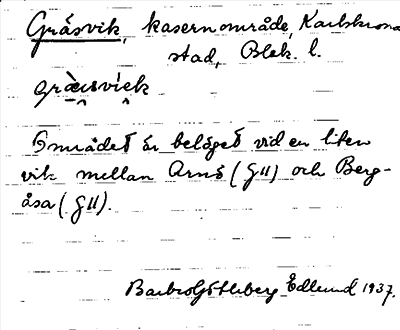 Gräsvik, kasernområde, Karlskrona
stad, Blek. l.
græ̀ɪsvíek
Området är beläget vid en liten
vik mellan Arnö (G11) och Berg-
åsa (G11).
Barbro Götleberg Edlund 1937.